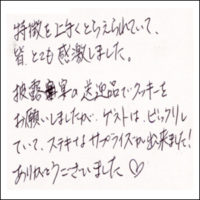 特徴を上手くとらえられていて、
皆、とても感激しました。
披露宴の送迎品でクッキーを
お願いしましたが、ゲストは、ビックリし
ていて、ステキなサプライズが出来ました!
ありがとうございました♡